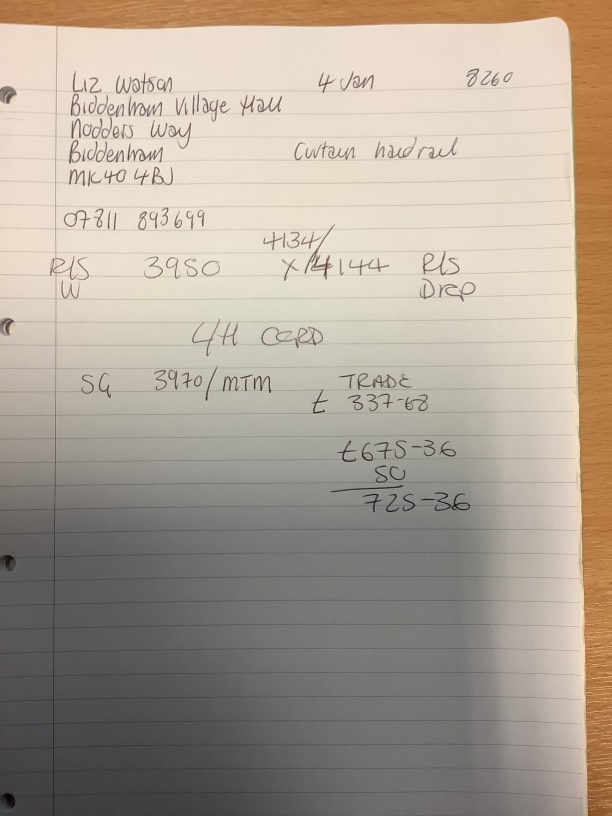 Liz Watson 4 Jan 8260
Biddenham Village Hall
Nodders Way
Biddenham Curtain handrail
MK40 4BJ
07811 893699
4134/
R/S 3980 x 4144 R/S
W Drop
L/H CORD
SG 3970/MTM TRADE
£ 337-68
£675-36
50
725-36